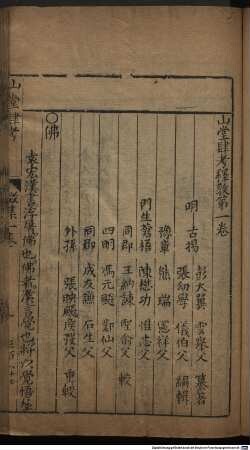 山堂肆考釋教第一卷
明 古揚 彭大翼 雲舉父 纂著
張幼學 儀伯父 編輯
豫章 熊 瑞 憲祥父
門生 蒼梧 陳懋功 惟志父
同郡 王納諫 聖俞父 較
四明 馮元颺 鄴仙父
同郡 成友謙 石生父
外孫 張映 父 重較
〇佛
袁宏漢書浮屠佛也佛者漢言覺也將以覺悟羣生
山堂肆考
集一卷